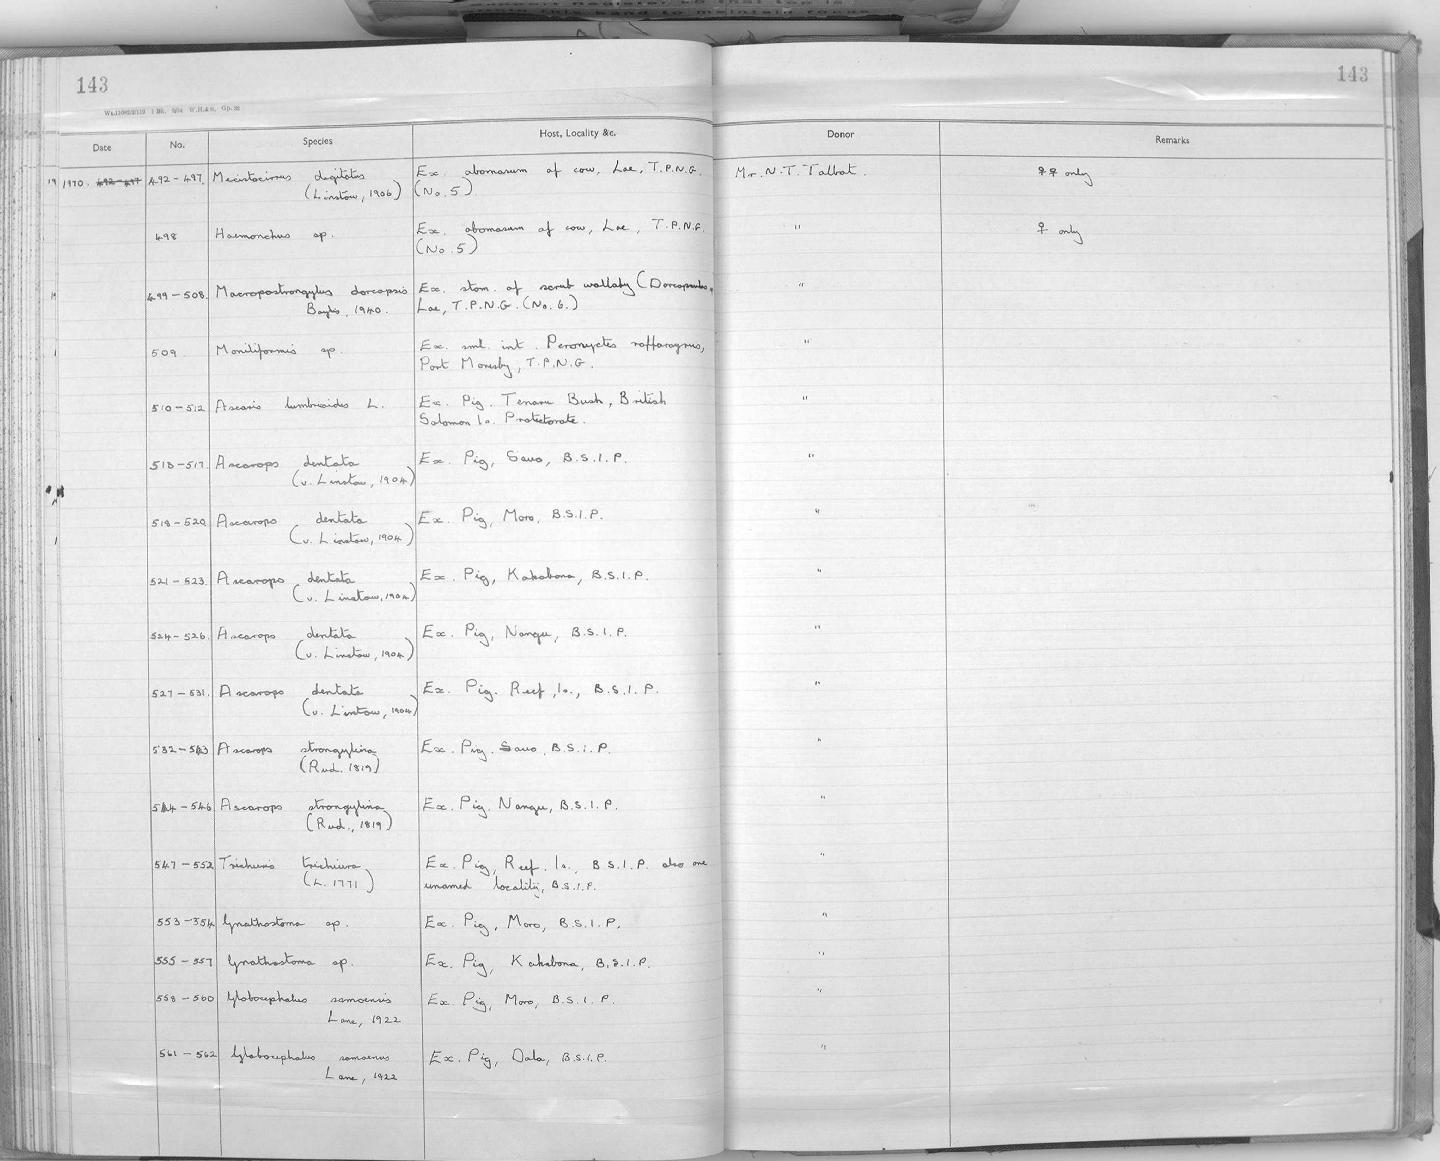 143
143
Date No. Species Host, Locality &c. Donor Remarks
1970. 492-497 492-497. Mecistocirrus digitatus Ex. abomasum of cow, Lae, T.P.N.G. Mr. N.T. Talbot. ♀♀ only
(Linstow, 1906) (No. 5)
498 Haemonchus sp. Ex. abomasum of cow, Lae, T.P.N.G. " ♀ only
(No. 5)
499-508. Macropostrongylus dorcopsis Ex. stom. of scrub wallaby (Dorcopsulus, "
Baylis, 1940. Lae, T.P.N.G. (No. 6.)
509. Moniliformis sp. Ex. sml. int. Peroryctes raffrayanus, "
Port Moresby, T.P.N.G.
510-512 Ascaris lumbricoides L. Ex. Pig. Tenaru Bush, British "
Solomon Is. Protectorate.
513-517. Ascarops dentata Ex. Pig, Savo, B.S.I.P. "
(v. Linstow, 1904)
518-520. Ascarops dentata Ex. Pig, Moro, B.S.I.P. "
(v. Linstow, 1904)
521-523. Ascarops dentata Ex. Pig, Kakabona, B.S.I.P. "
(v. Linstow, 1904)
524-526. Ascarops dentata Ex. Pig, Nangu, B.S.I.P. "
(v. Linstow, 1904)
527-531. Ascarops dentata Ex. Pig. Reef Is., B.S.I.P. "
(v. Linstow, 1904)
532-543 Ascarops strongylina Ex. Pig. Savo, B.S.I.P. "
(Rud. 1819)
544-546 Ascarops strongylina Ex. Pig. Nangu, B.S.I.P. "
(Rud., 1819)
547-552 Trichuris trichiura Ex. Pig, Reef. Is., B.S.I.P. also one "
(L. 1771) unnamed locality, B.S.I.P.
553-554 Gnathostoma sp. Ex. Pig, Moro, B.S.I.P. "
555-557 Gnathostoma sp. Ex. Pig, Kakabona, B.S.I.P. "
558-560 Globocephalus samoensis Ex. Pig, Moro, B.S.I.P. "
Lane, 1922
561-562 Globocephalus samoensis Ex. Pig, Dala, B.S.I.P. "
Lane, 1922